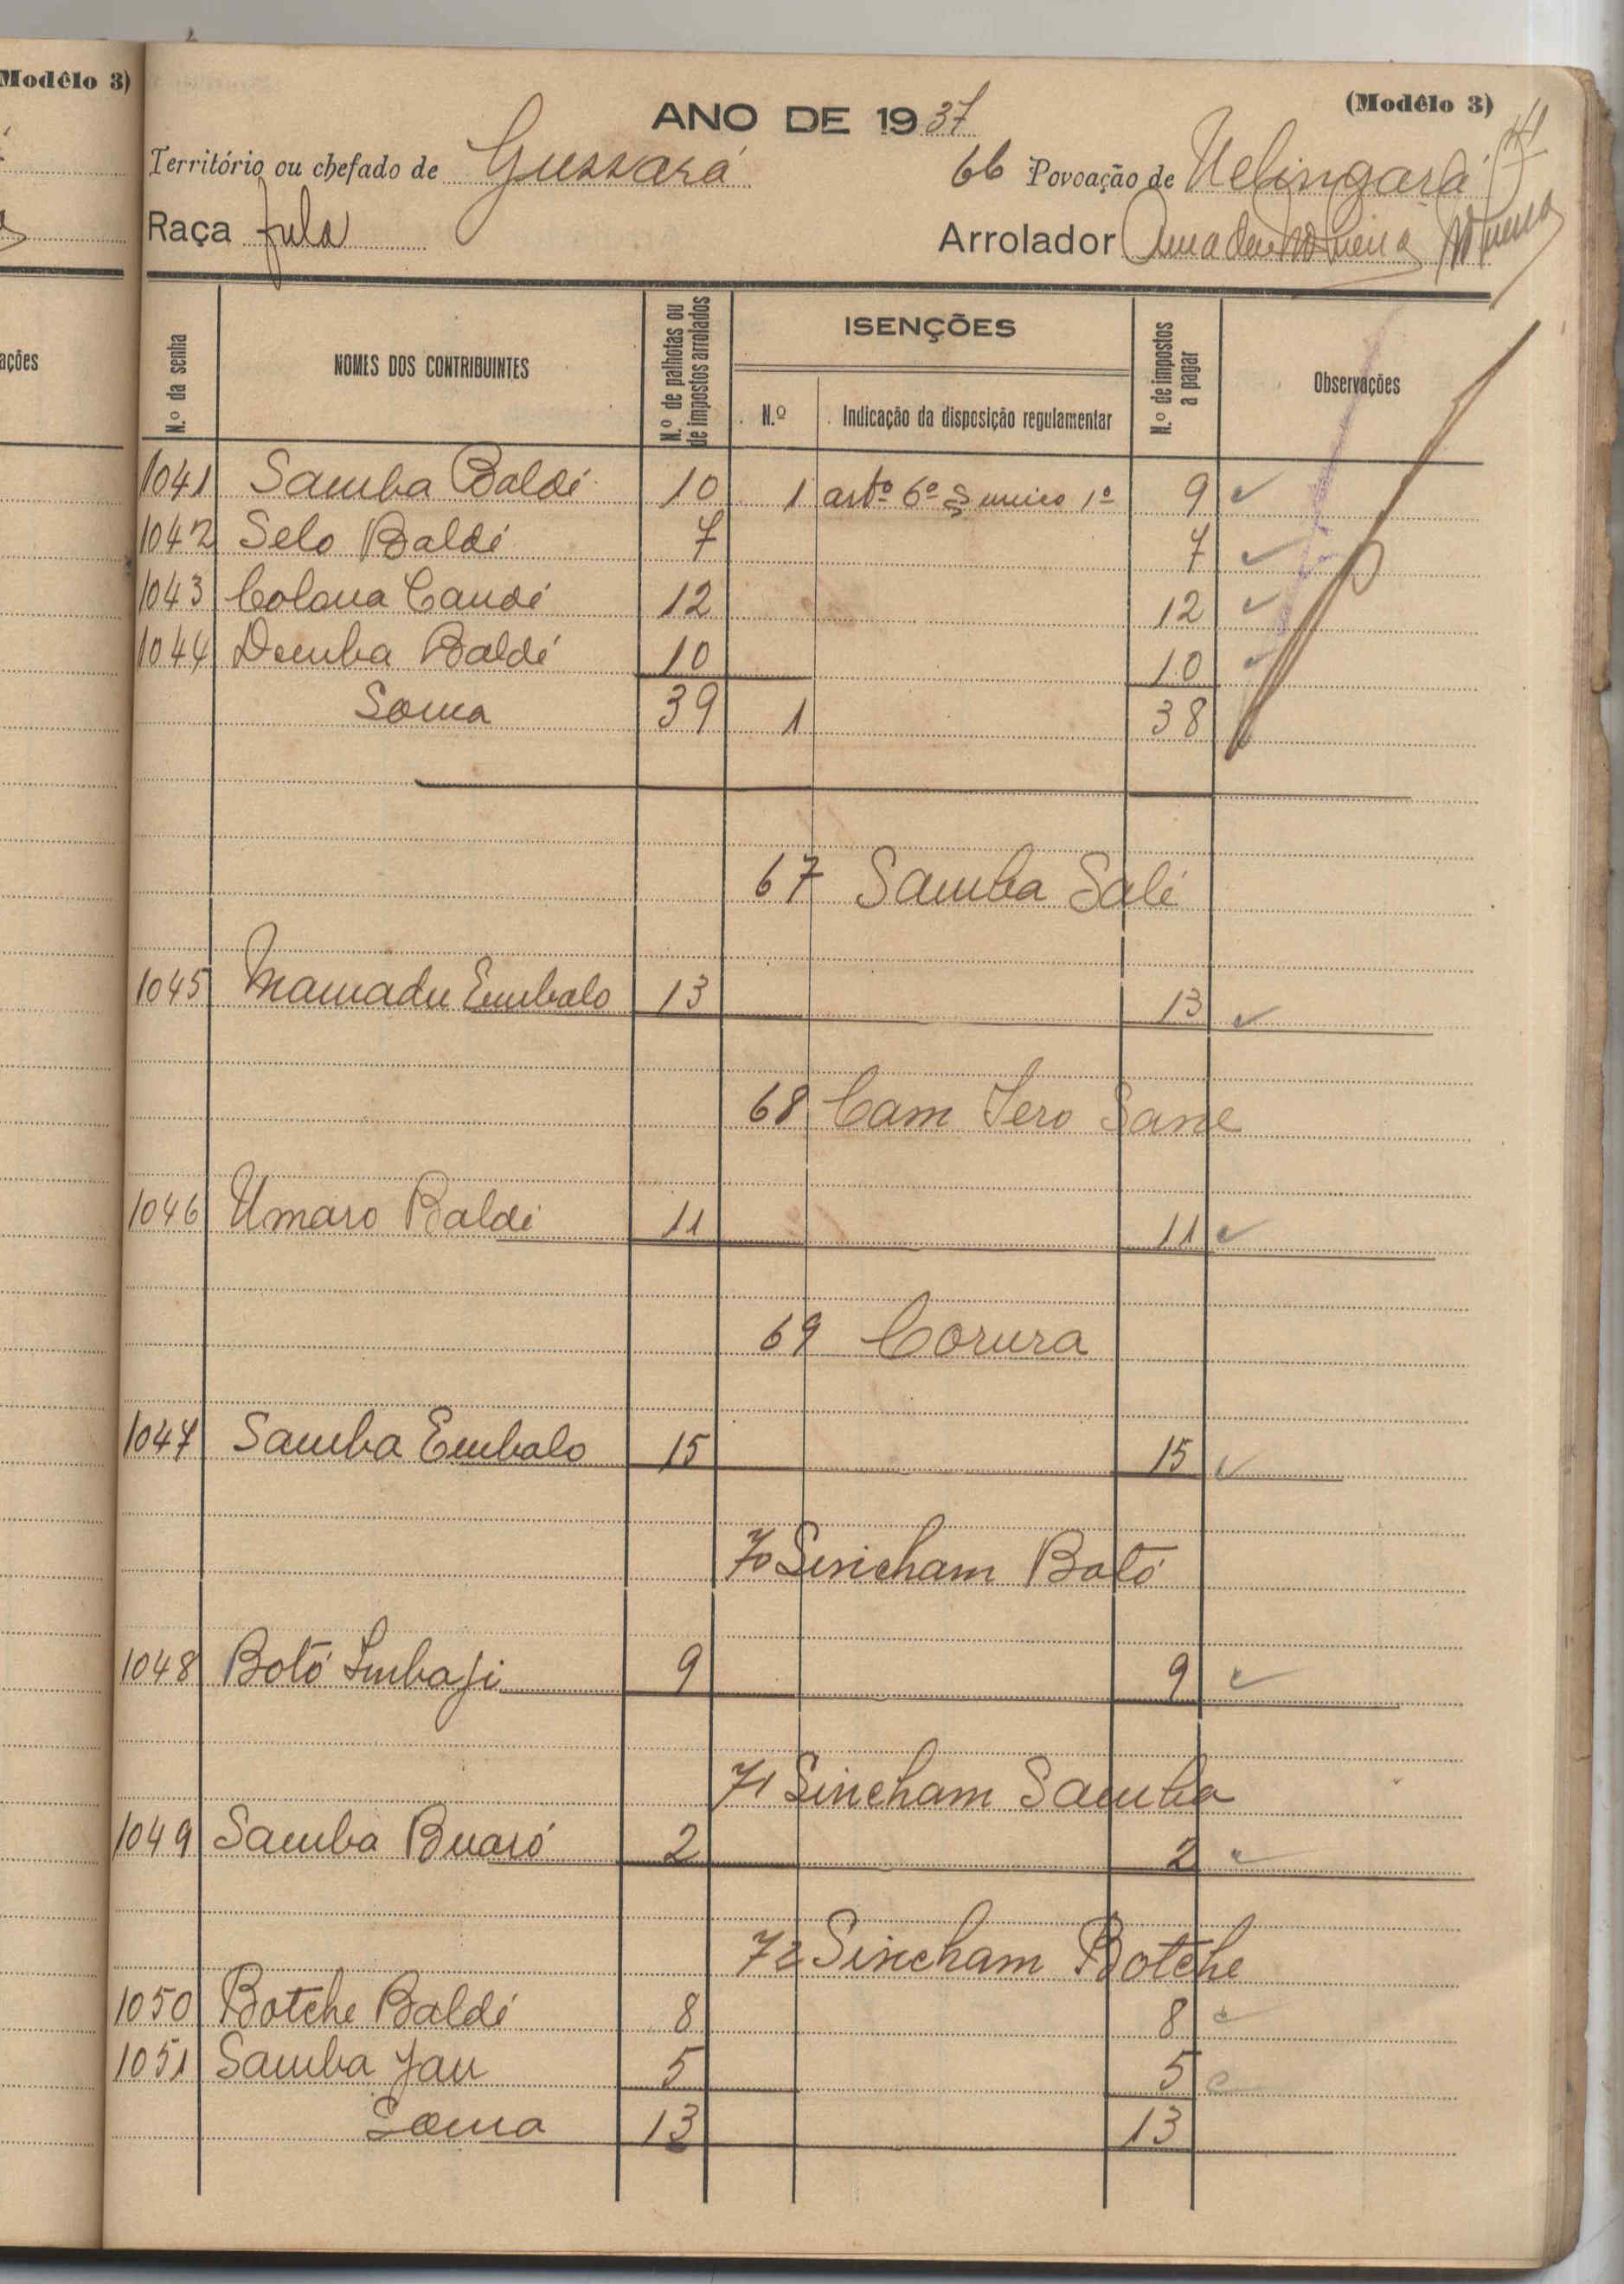 Modêlo 3)
(Modêlo 3)
ANO DE 1937
Território ou chefado de Gussará 66 Povoação de Uelingará
Raça fula Arrolador
ações
N.º da senha NOMES DOS CONTRIBUINTES N.º de palhotas ou de impostos arrolados ISENÇÕES N.º de impostos a pagar Observações
N.º Indicação da disposição regulamentar
1041 Samba Baldé 10 1 artº 6º § unico 1º 9
1042 Selo Baldé 7 7
1043 Colona Candé 12 12
1044 Demba Baldé 10 10
Soma 39 1 38
67 Samba Salé
1045 Mamadu Embalo 13 13
68 Cam Sero Sane
1046 Umaro Baldé 11 11
69 Corura
1047 Samba Embalo 15 15
70 Sincham Botó
1048 Botó Imbaji 9 9
71 Sincham Samba
1049 Samba Buaró 2 2
72 Sincham Botche
1050 Botche Baldé 8 8
1051 Samba Jau 5 5
Soma 13 13